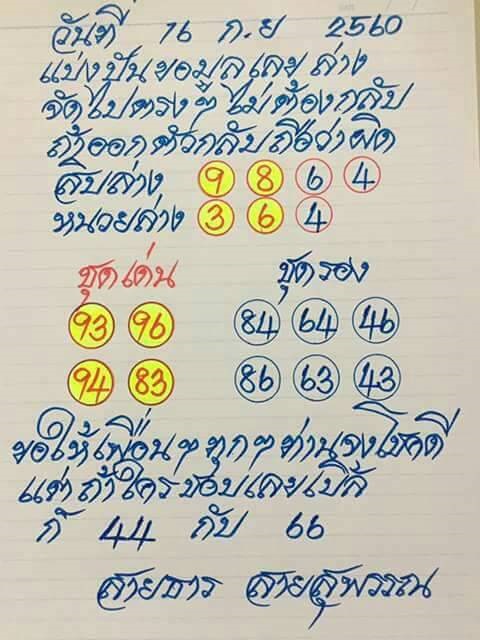 วันที่ 16 ก.ย 2560
แบ่งปันขอมูลเลขล่าง
จัดไปตรงๆ ไม่ต้องกลับ
ถ้าออกตัวกลับถือว่าผิด
สิบล่าง 9 8 6 4
หน่วยล่าง 3 6 4
ชุดเด่น ชุดรอง
93 96 84 64 46
94 83 86 63 43
ขอให้เพื่อนๆทุกๆท่านจงโชคดี
แต่ถ้าใครชอบเลขเบิ้ล
ก็ 44 กับ 66
สายธาร สายสุพรรณ